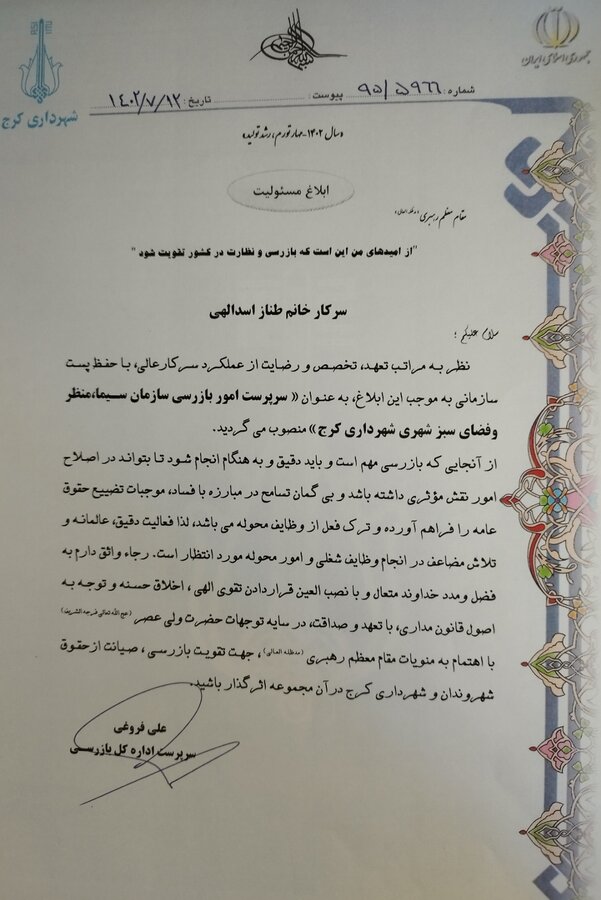 جمهوری اسلامی ایران
شهرداری کرج
شماره: ۹۵/۵۹۶۶ پیوست: تاریخ: ۱۴۰۲/۷/۱۲
«سال ۱۴۰۲-مهار تورم، رشد تولید»
ابلاغ مسئولیت
مقام معظم رهبری
"از امیدهای من این است که بازرسی و نظارت در کشور تقویت شود"
سرکار خانم طناز اسدالهی
سلام علیکم ؛
نظر به مراتب تعهد، تخصص و رضایت از عملکرد سرکارعالی، با حفظ پست
سازمانی به موجب این ابلاغ، به عنوان « سرپرست امور بازرسی سازمان سیما،منظر
وفضای سبز شهری شهرداری کرج» منصوب می گردید.
از آنجایی که بازرسی مهم است و باید دقیق و به هنگام انجام شود تا بتواند در اصلاح
امور نقش مؤثری داشته باشد و بی گمان تسامح در مبارزه با فساد، موجبات تضییع حقوق
عامه را فراهم آورده و ترک فعل از وظایف محوله می باشد، لذا فعالیت دقیق، عالمانه و
تلاش مضاعف در انجام وظایف شغلی و امور محوله مورد انتظار است. رجاء واثق دارم به
فضل ومدد خداوند متعال و با نصب العین قراردادن تقوی الهی ، اخلاق حسنه و توجه به
اصول قانون مداری، با تعهد و صداقت، در سایه توجهات حضرت ولی عصر (عج الله تعالی فرجه الشریف)
با اهتمام به منویات مقام معظم رهبری (مدظله العالی) ، جهت تقویت بازرسی ، صیانت ازحقوق
شهروندان و شهرداری کرج درآن مجموعه اثرگذار باشید.
علی فروغی
سرپرست اداره کل بازرسی